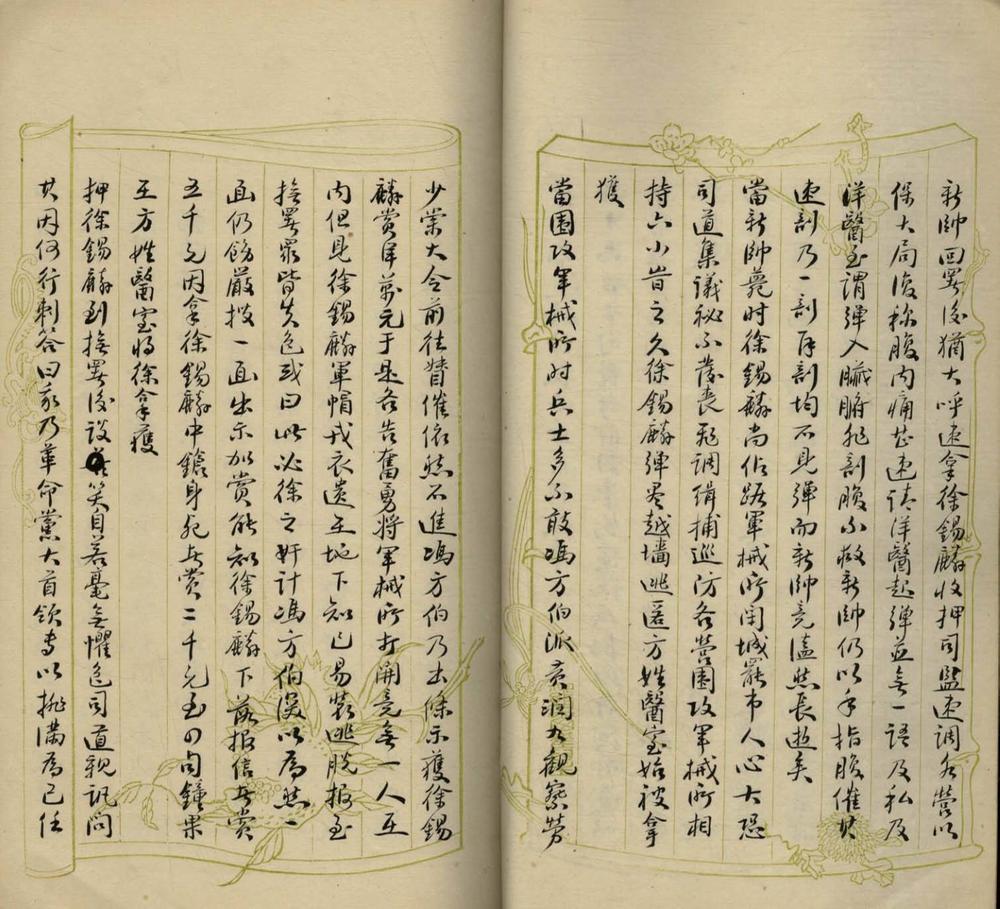 新帥回署後猶大呼速拿徐錫麟收押司監速調各營以
保大局復称腹内痛甚速請洋醫起彈並無一語及私及
洋醫至謂彈入臟腑非剖腹不救新帥仍以手指腹催其
速剖乃一剖再剖均不見彈而新帥竟溘然長逝矣
當新帥薨時徐錫麟尚佔踞軍械所閉城罷市人心大恐
司道集議秘不發喪飛調緝捕巡防各營圍攻軍械所相
持六小旹之久徐錫麟彈尽越墻逃匿方姓醫室始被拿
獲
當圍攻軍械所时兵士多不敢馮方伯派黄潤九觀察劳
少棠大令前往督催依然不進馮方伯乃出條示獲徐錫
麟賞洋萬元于是各告奮勇將軍械所打開竟無一人在
内但見徐錫麟軍帽戎衣遺在地下知已易裝逃脱报至
撫署衆皆失色或曰此必徐之奸計馮方伯深以爲然一
面仍飭嚴搜一面出示加賞能知徐錫麟下落报信者賞
五千元因拿徐錫麟中鎗身死者賞二千元至四句鐘果
在方姓醫室將徐拿獲
押徐錫麟到撫署後談笑自若毫無懼色司道親訊問
其因何行刺答曰我乃革命黨大首領專以排滿爲己任